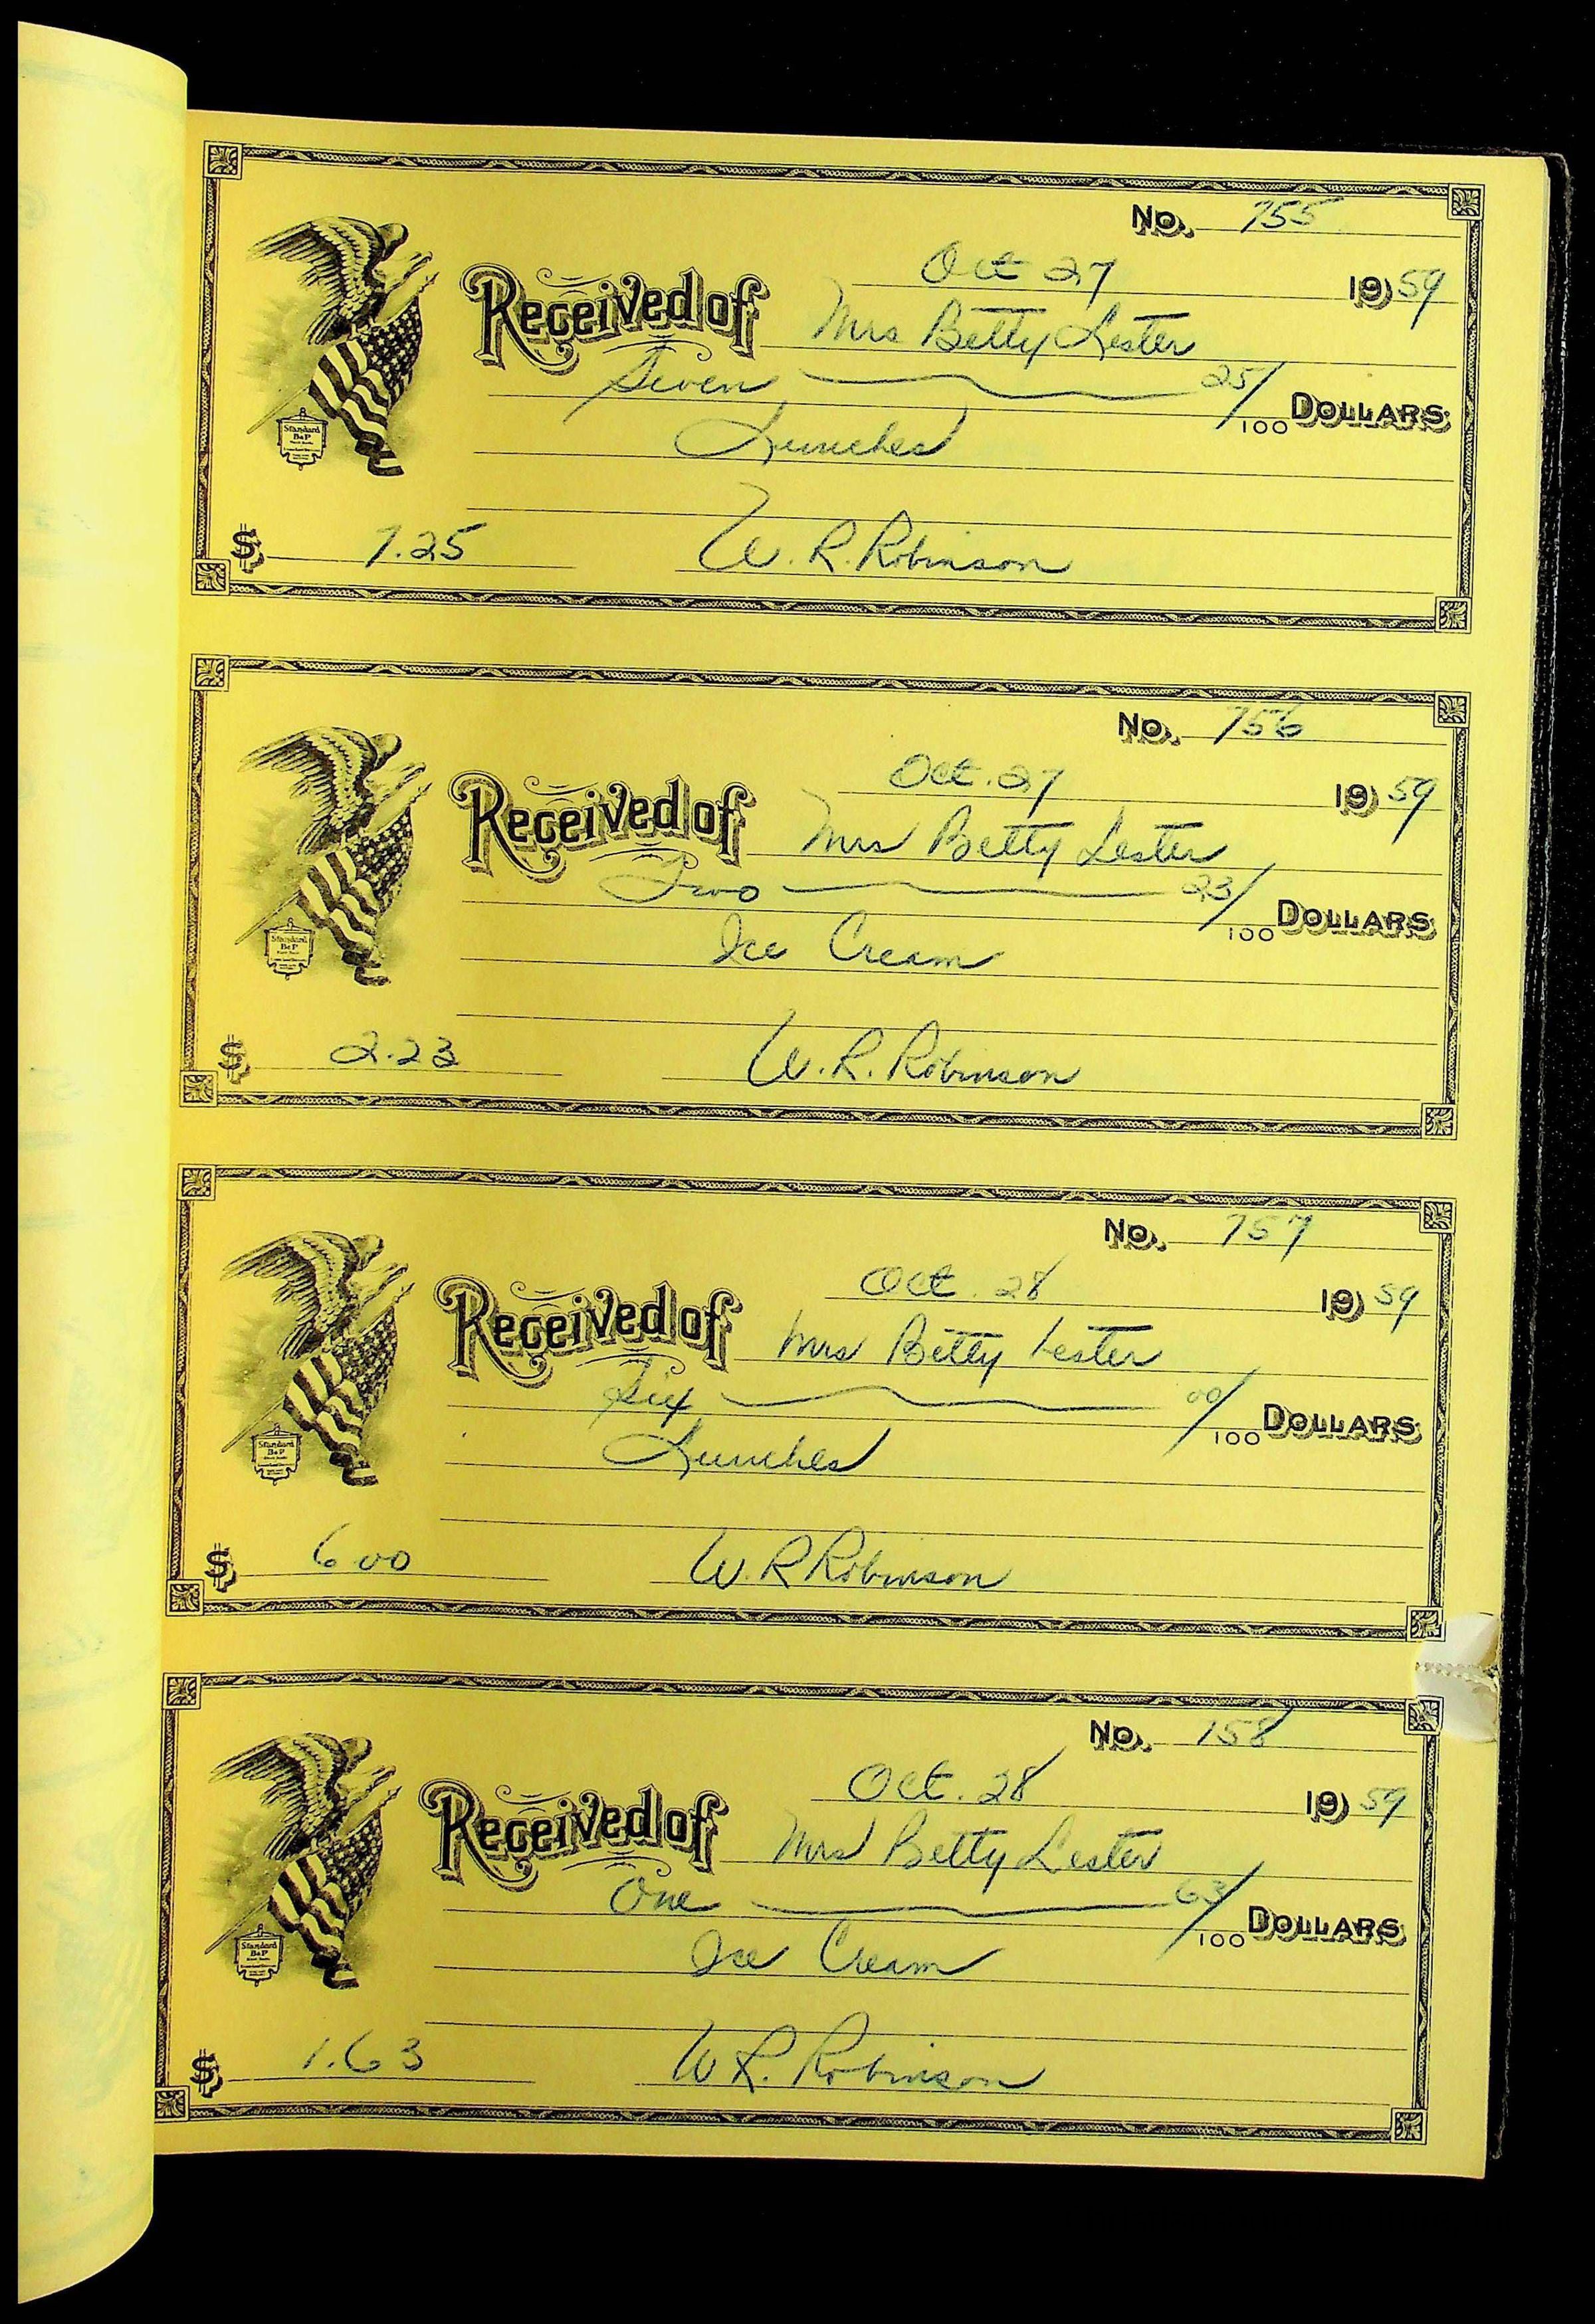 No. 755
Oct 27 1959
Received of Mrs Betty Lester
Seven 25/100 DOLLARS
Lunches
$ 7.25 W. R. Robinson
Standard
B&P
No. 756
Oct. 27 1959
Received of Mrs Betty Lester
Two 23/100 DOLLARS
Ice Cream
$ 2.23 W. R. Robinson
Standard
B&P
No. 757
Oct. 28 1959
Received of Mrs Betty Lester
Six 00/100 DOLLARS
Lunches
$ 6.00 W. R Robinson
Standard
B&P
No. 758
Oct. 28 1959
Received of Mrs Betty Lester
One 63/100 DOLLARS
Ice Cream
$ 1.63 W R. Robinson
Standard
B&P